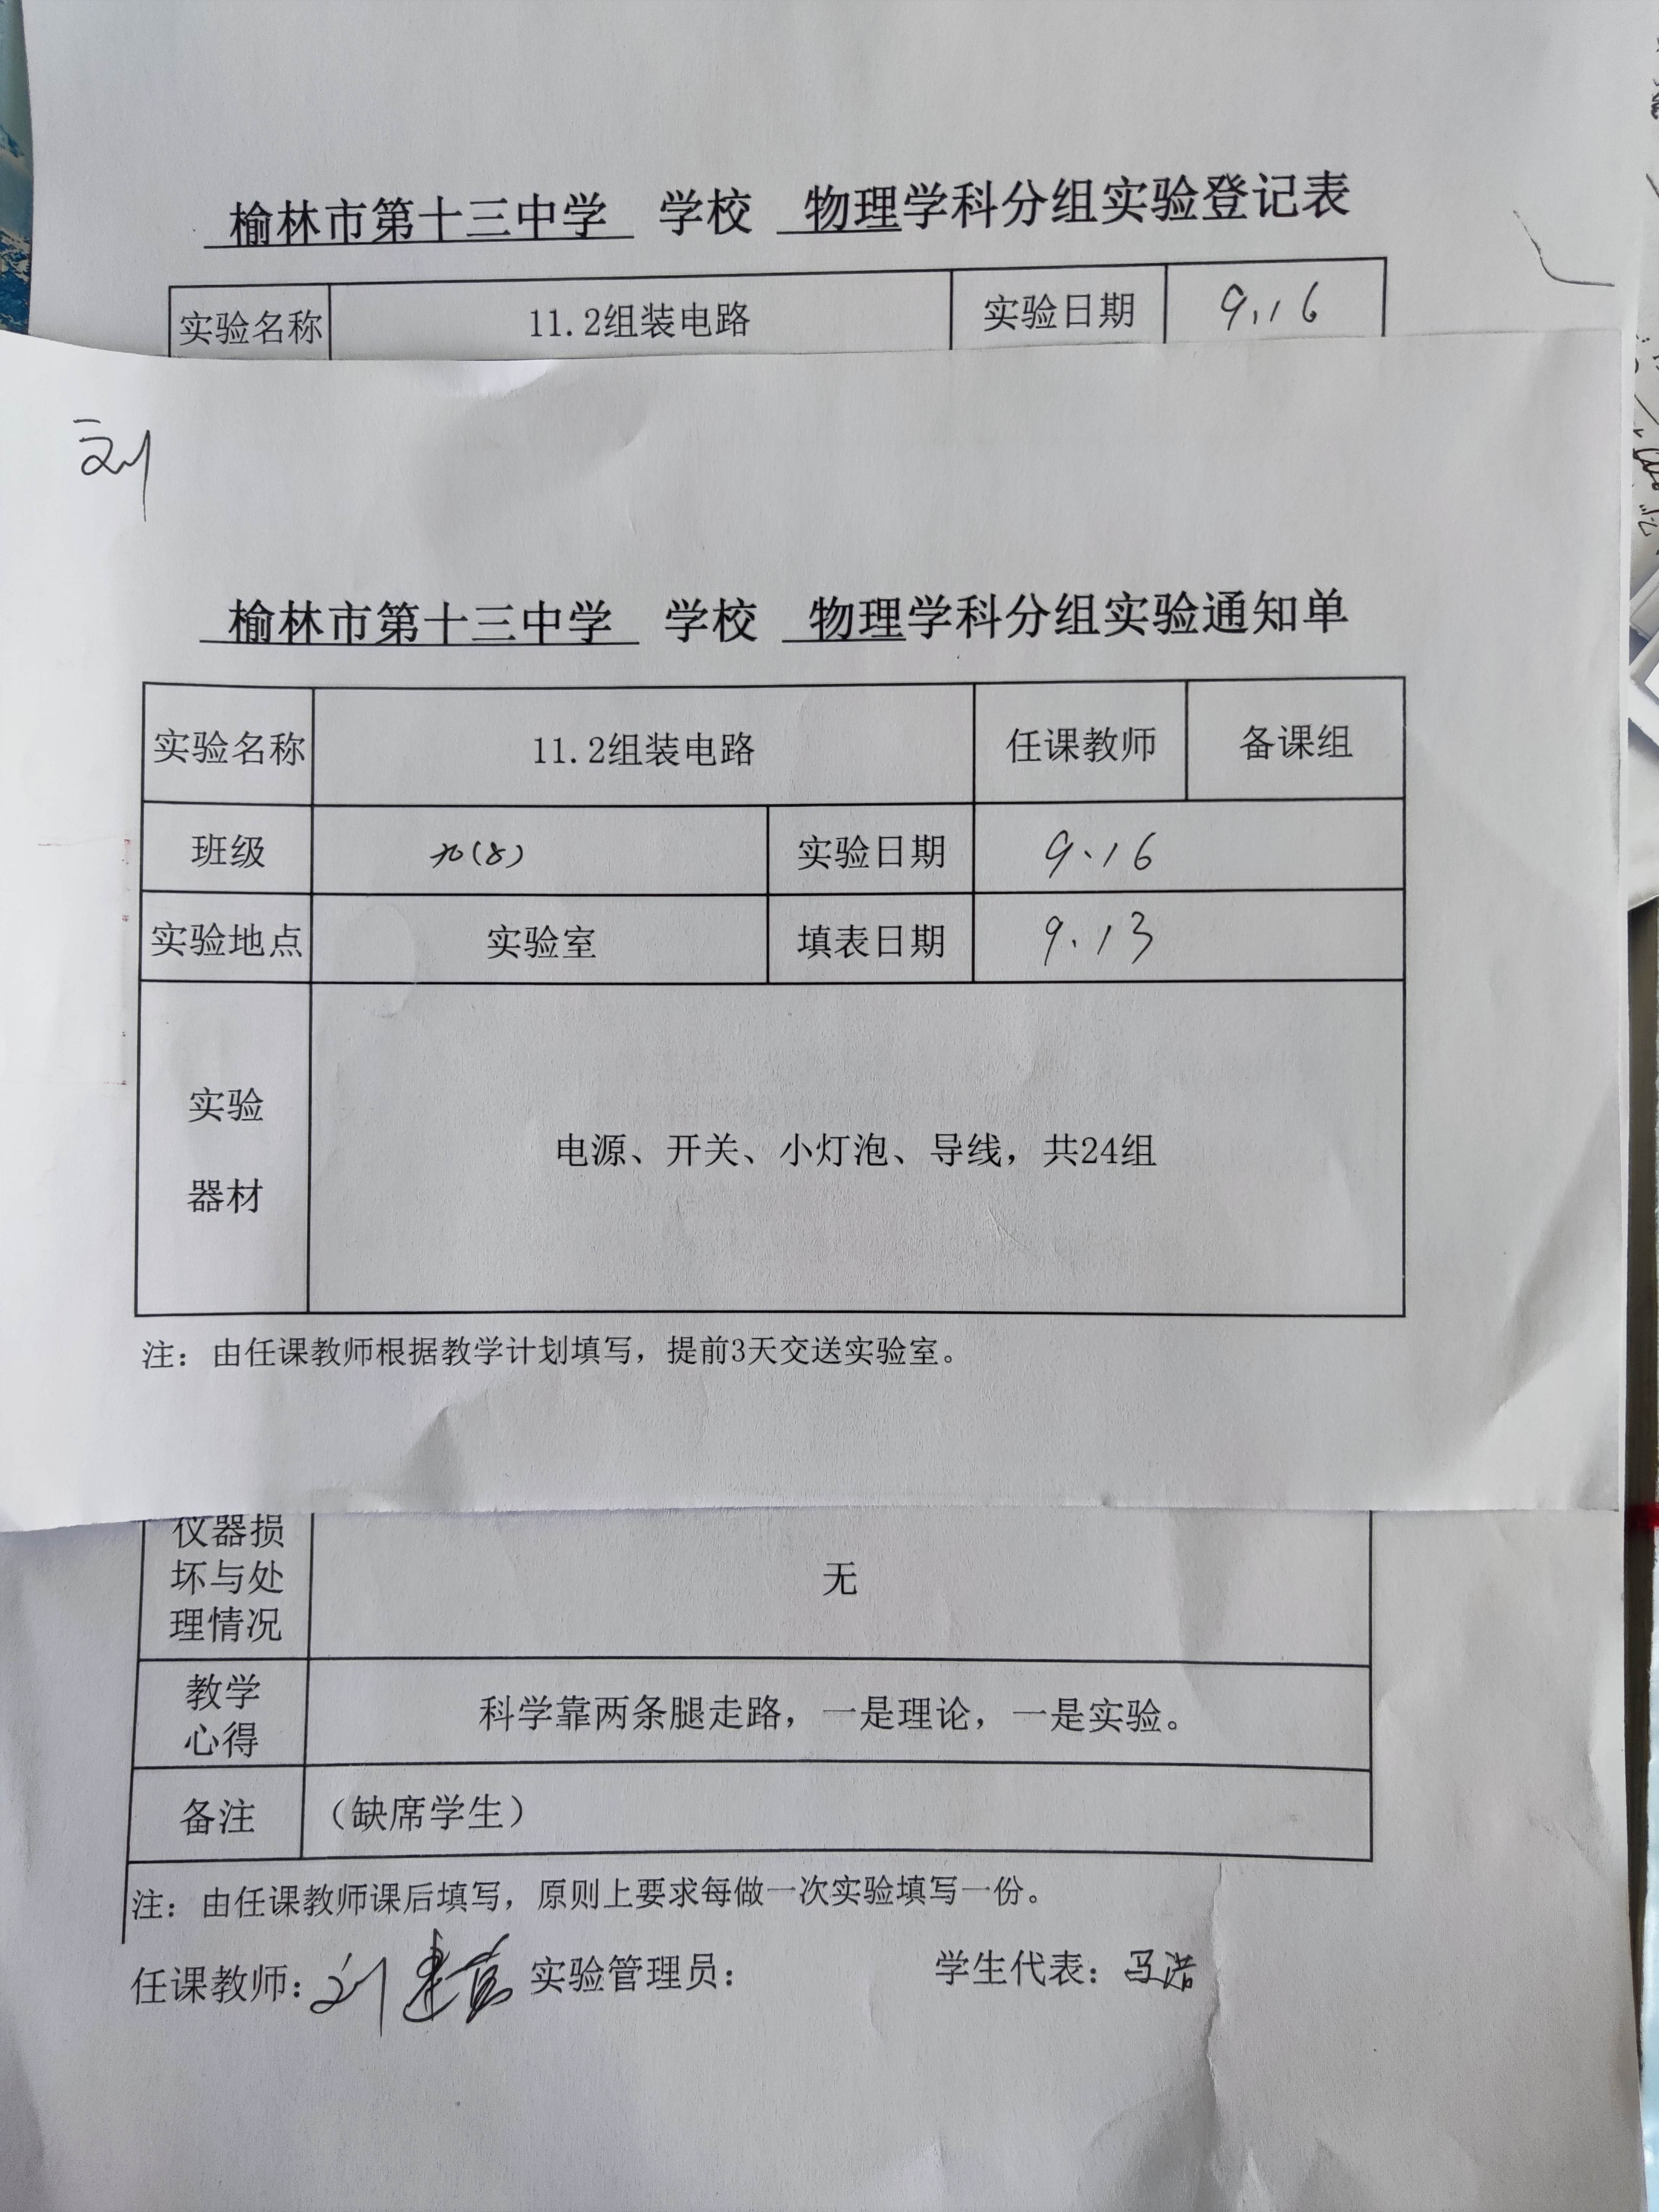 榆林市第十三中学 学校 物理学科分组实验登记表
实验名称 11.2组装电路 实验日期 9.16
刘
榆林市第十三中学 学校 物理学科分组实验通知单
实验名称 11.2组装电路 任课教师 备课组
班级 九(8) 实验日期 9.16
实验地点 实验室 填表日期 9.13
实验
器材
电源、开关、小灯泡、导线，共24组
注：由任课教师根据教学计划填写，提前3天交送实验室。
仪器损
坏与处
理情况
无
教学
心得
科学靠两条腿走路，一是理论，一是实验。
备注 （缺席学生）
注：由任课教师课后填写，原则上要求每做一次实验填写一份。
任课教师：刘 实验管理员： 学生代表：马浩